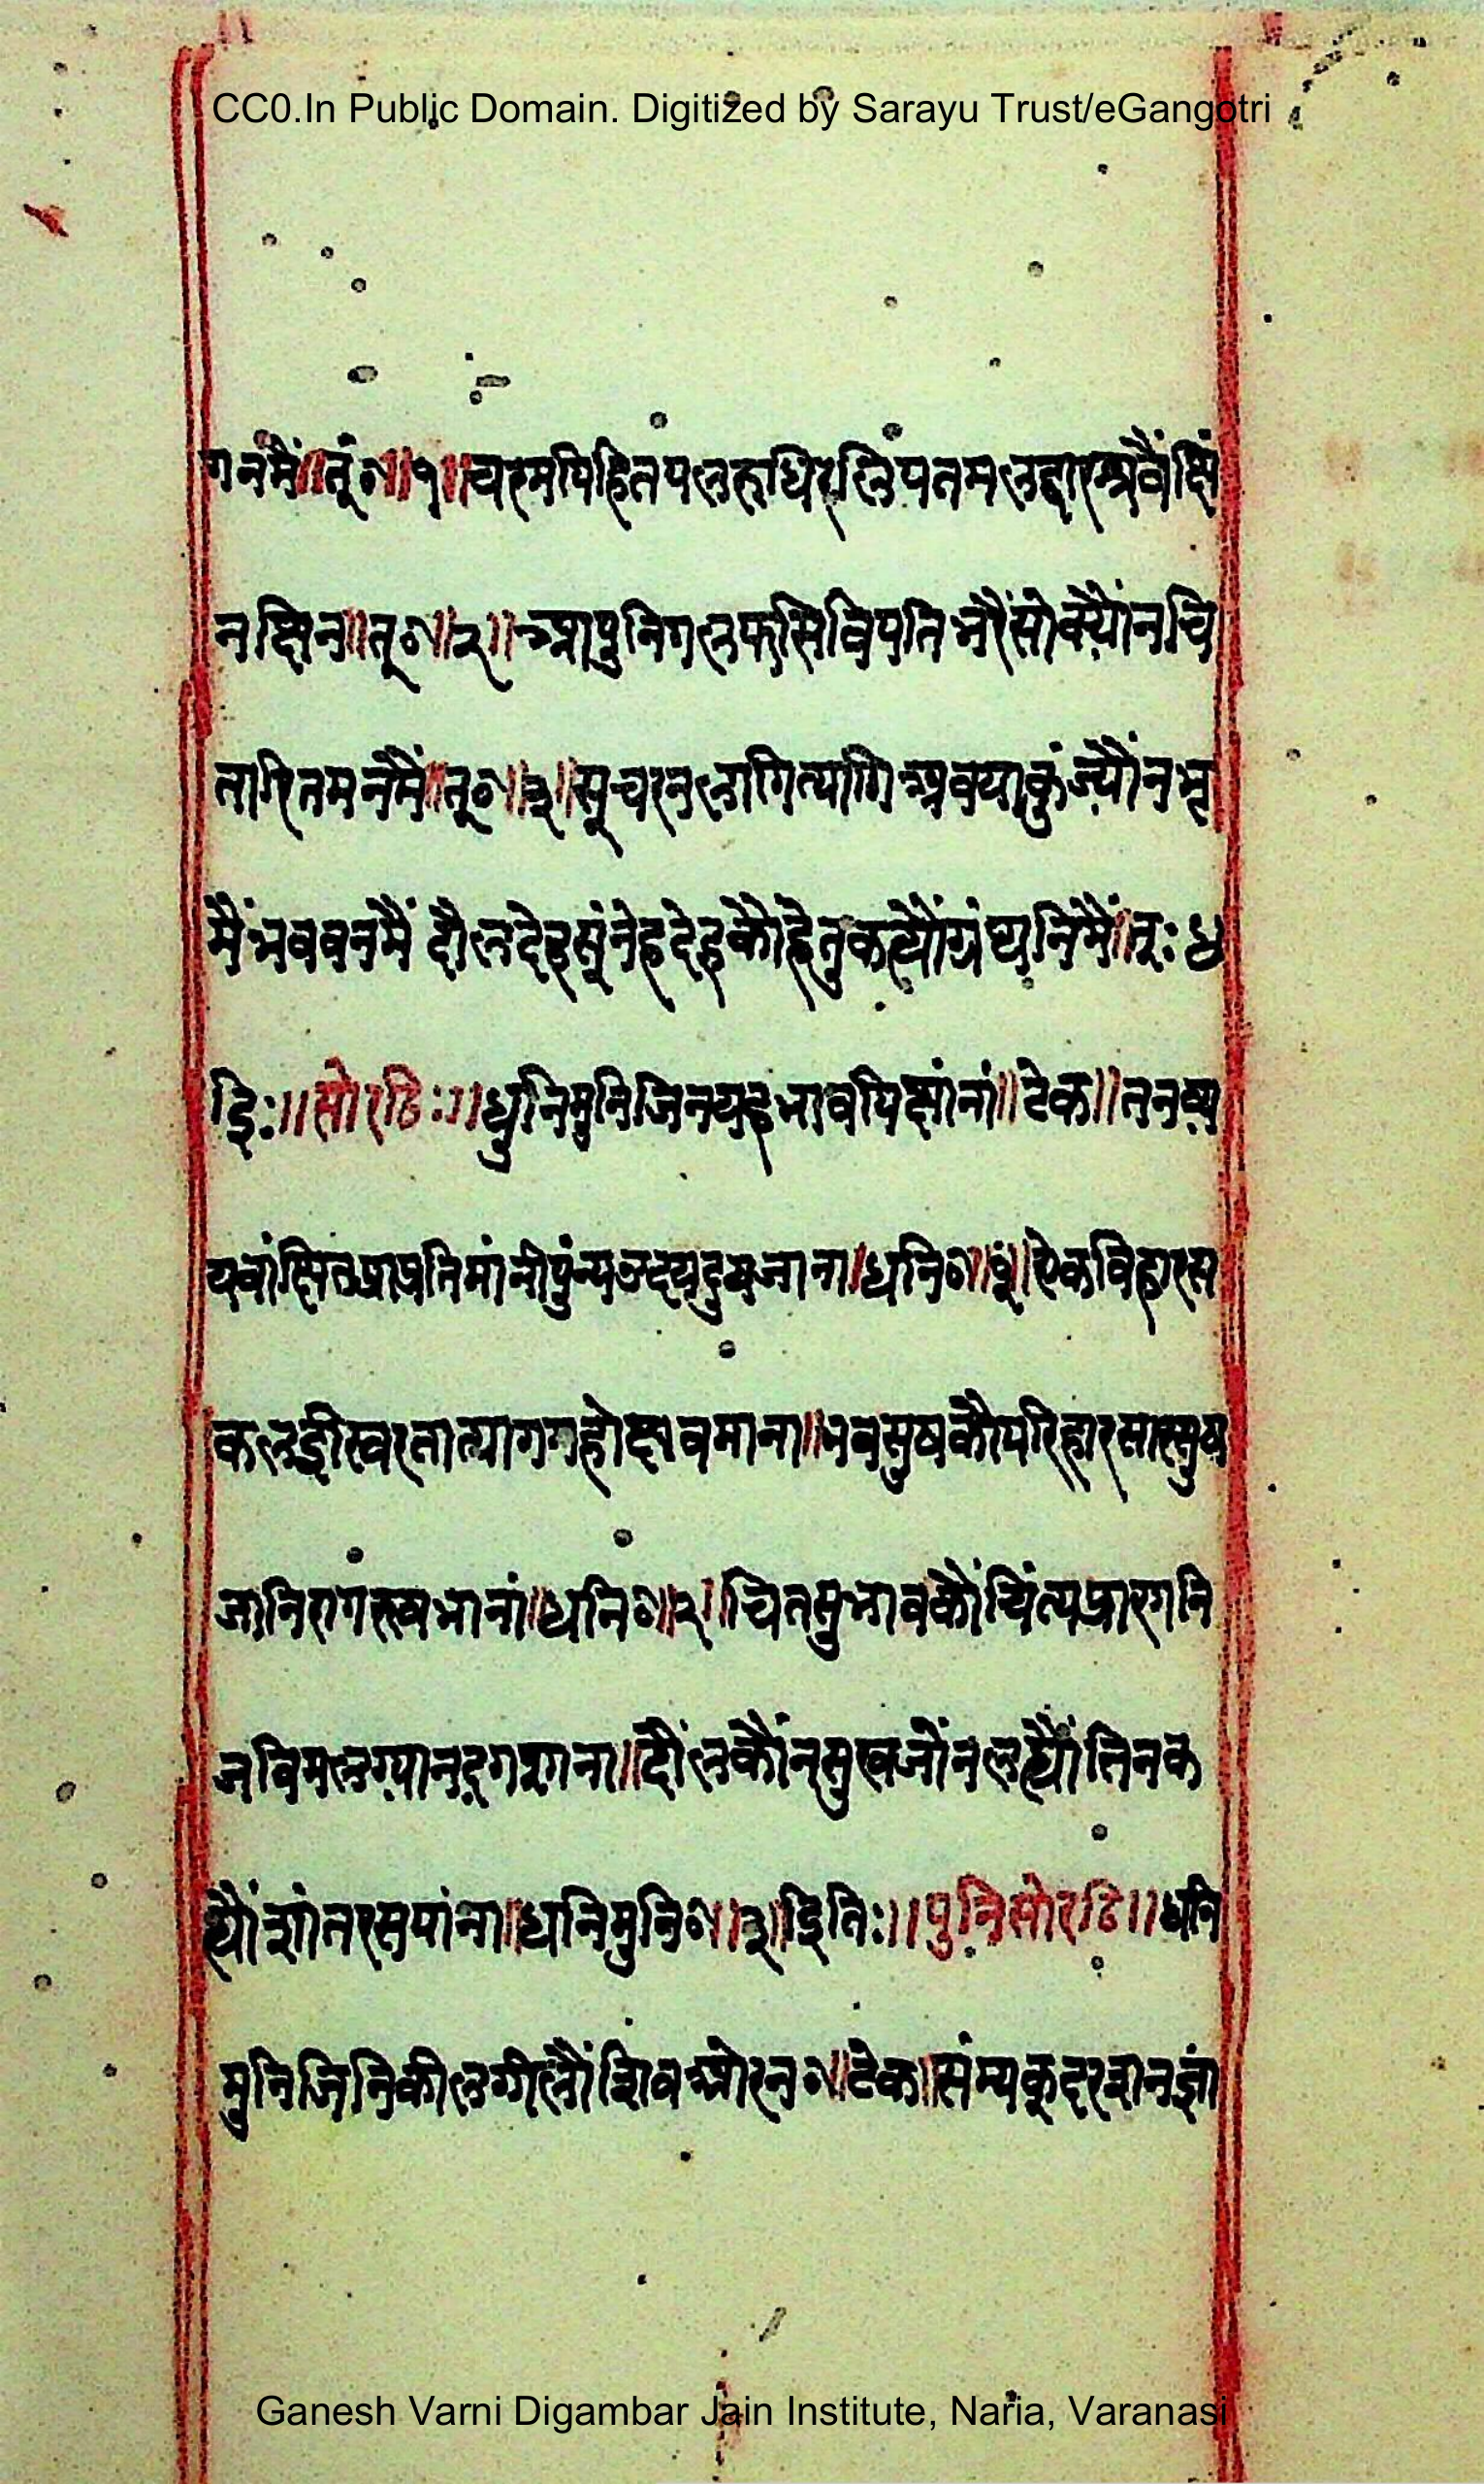 CC0.In Public Domain. Digitized by Sarayu Trust/eGangotri
गनमैं॥तूं०॥१॥चरमपिहितपलरुधिरलिपतमलद्वारश्रवैंछिं
नछिन॥तू०॥२॥आपुनिगलफासिविपतिभरैंसोक्यौंनचि
तारितमनमैं॥तू०॥३॥सूचरनलागित्यागिअवयाकुंज्यौंनभृ
मैंभववनमैं दौलदेहसूंनेहदेहकौहेतुकह्यौंग्रंथनिमैं॥तू:४
इि:॥सोरठि:॥धुनिमुनिजिनयहभावपिछांनां॥टेक॥तनव्य
यवांछितप्रापतिमांनीपुंन्यउदयदुषजाना॥धनि०॥१॥ऐकविहारस
कलइीस्वरतात्यागगहोछवमाना॥भवसुषकौपरिहारसारसुष
जानिरागरुखभानां॥धनि०॥२॥चितसुभावकौंचिंत्यप्रारगनि
जविमलग्यानद्रगरागना॥दौंलकौंनसुखजौंनलह्यौंतिनक
ह्यौंशांतरसपांना॥धनिमुनि०॥३॥इिति:॥पुनिसोरठि॥धनि
मुनिजिनिकीलगीलौंशिवओरन०॥टेक॥संम्यकदरशनज्ञां
Ganesh Varni Digambar Jain Institute, Naria, Varanasi